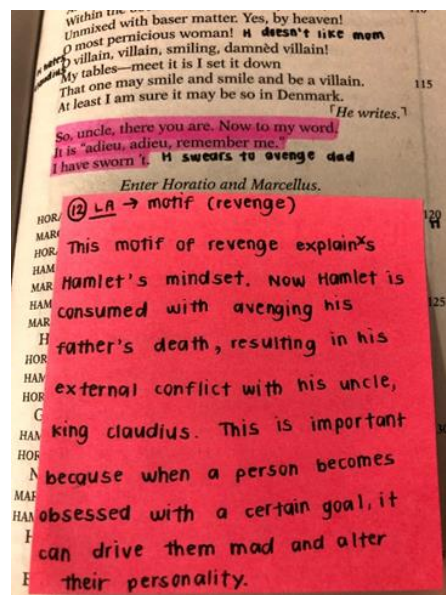 Within the
Unmixed with baser matter. Yes, by heaven!
O most pernicious woman! H doesn't like mom
O villain, villain, smiling, damnèd villain!
My tables—meet it is I set it down
That one may smile and smile and be a villain.
115
At least I am sure it may be so in Denmark.
「He writes.」
So, uncle, there you are. Now to my word.
It is "adieu, adieu, remember me."
I have sworn 't. H swears to avenge dad
Enter Horatio and Marcellus.
12 LA → motif (revenge)
120
This motif of revenge explains
Hamlet's mindset. Now Hamlet is
consumed with avenging his
125
father's death, resulting in his
external conflict with his uncle,
king claudius. This is important
because when a person becomes
obsessed with a certain goal, it
can drive them mad and alter
their personality.
HOR
HAM
MAR
HAM
MAR
H
HOR
HAM
HOR
HAM
HOR
MAR
HAM